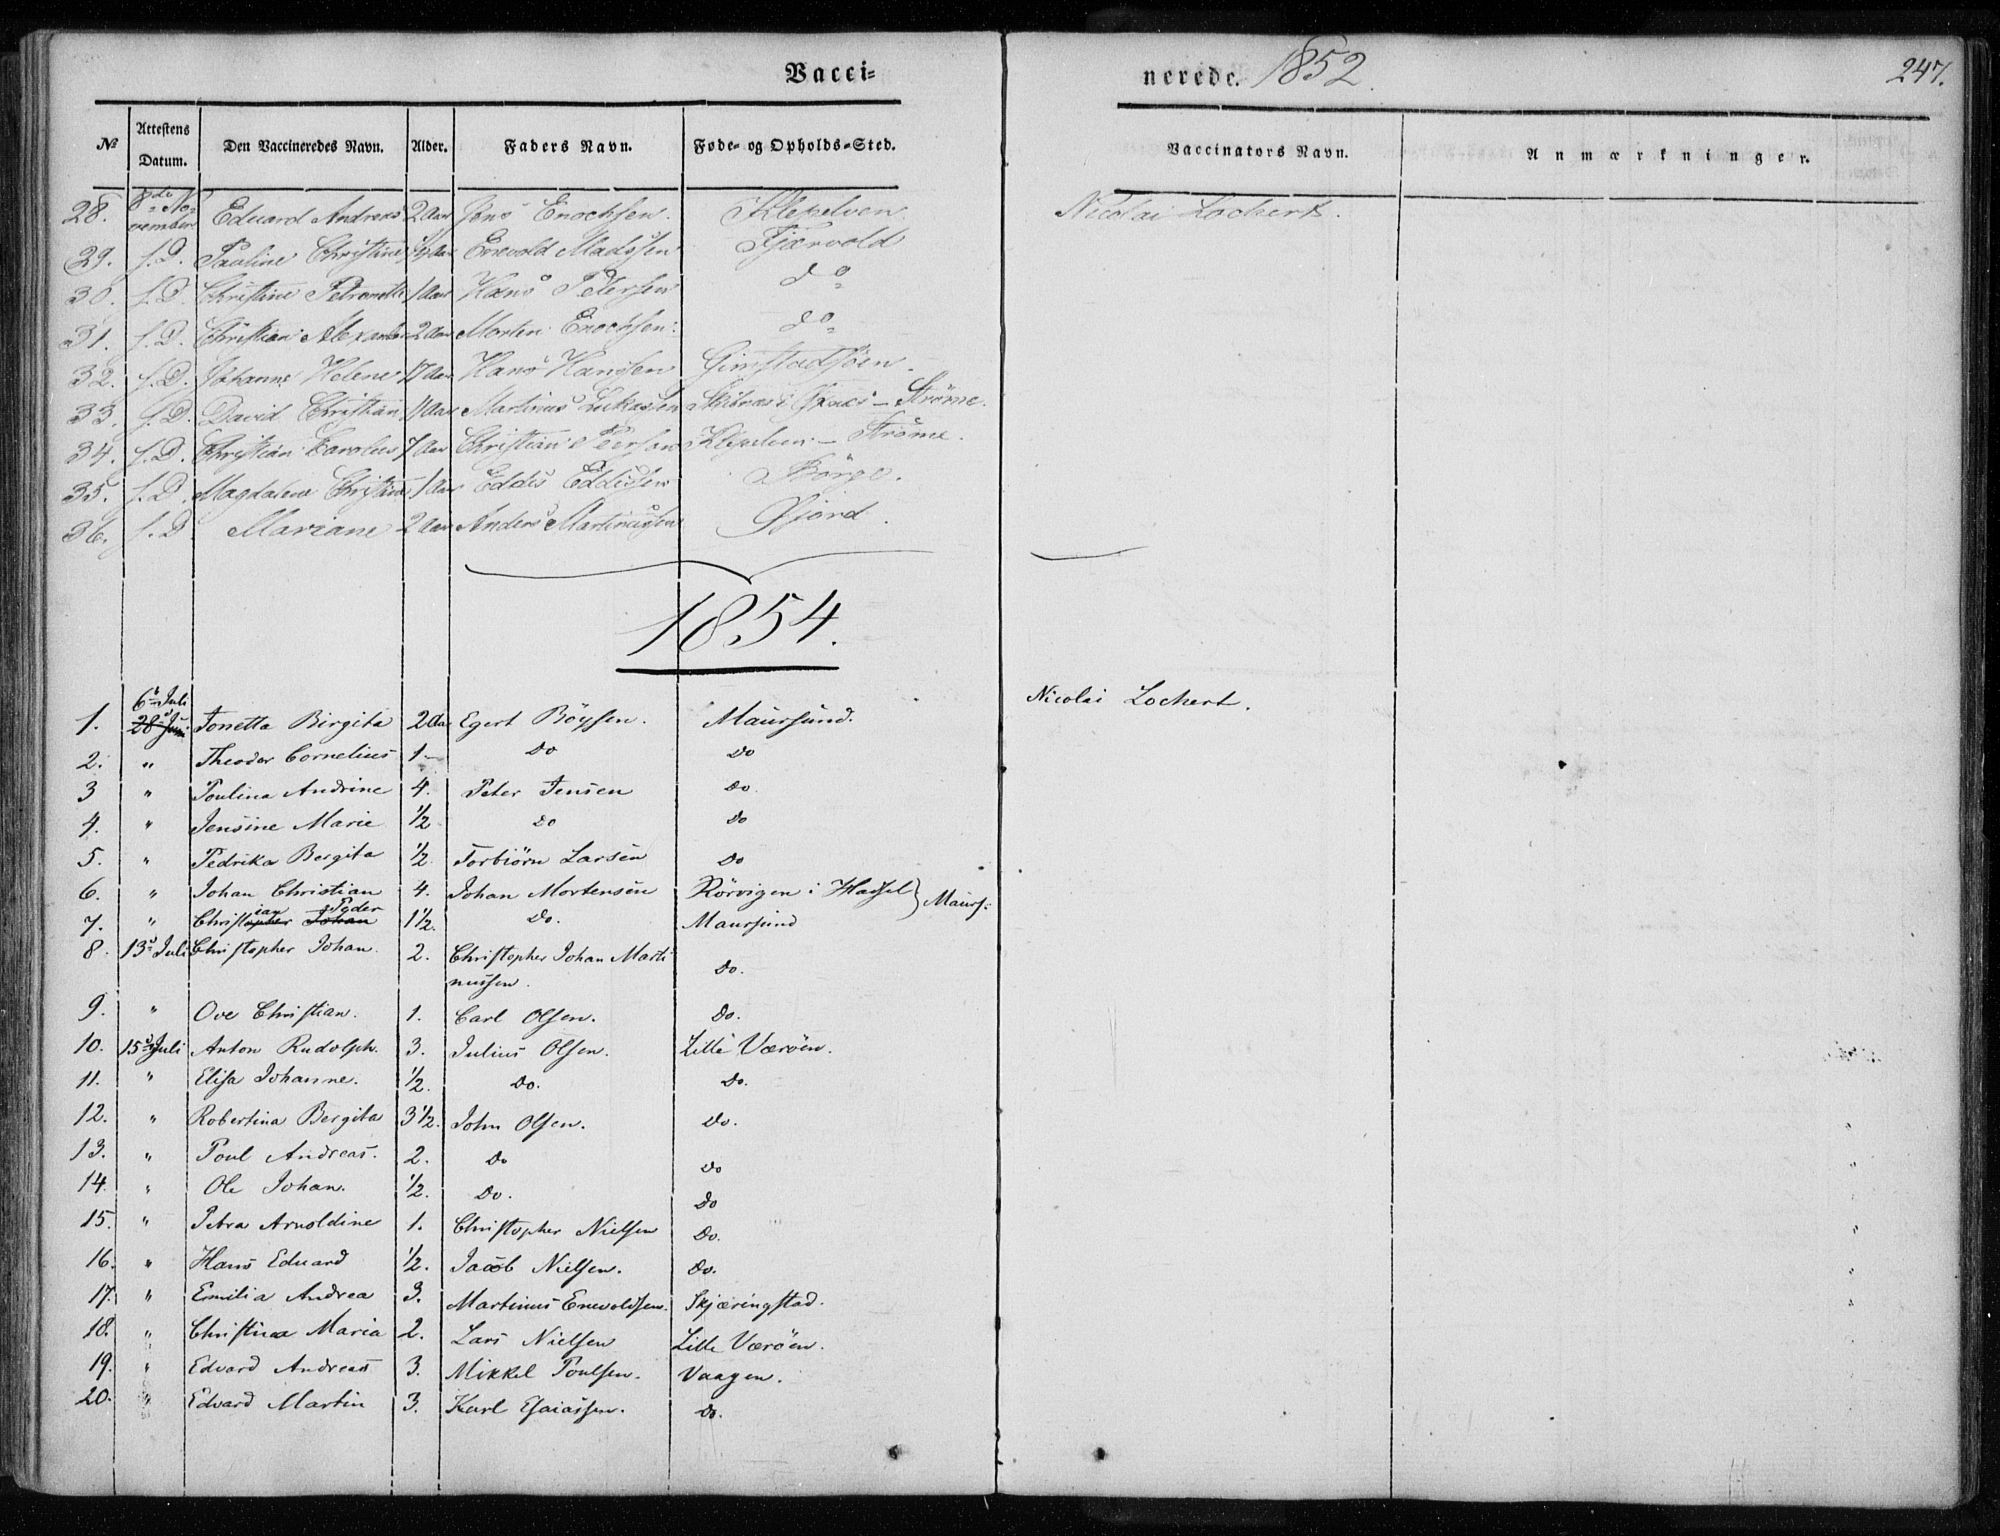 Vacci= nerede. 1852. 247.
№ Attestens Datum. Den Vaccineredes Navn. Alder. Faders Navn. Føde- og Opholds-Sted. Vaccinators Navn. Anmærkninger.
28. 8de November Eduard Andreas 2 Aar Jens Enochsen. Klepelven Nicolai Lochert.
29. s.D. Pauline Christine Enevold Madssen Fjærvold
30. s.D. Christine Petronelle 1 Aar Hans Petersen do
31. s.D. Christian Alexander 2 Aar Morten Enochsen. do
32. s.D. Johanne Helene Aar Hans Hanssen Gimstadsøen.
33. s.D. David Christian Aar Martinus Lukassen i Øxnes – Strömme.
34. s.D. Christian Carolus 7 Aar Christian Peersen Klepelven – Strömme.
35. s.D. Magdalena Christine 1 Aar Eddis Eddissen Börge.
36. s.D. Mariane 2 Aar Anders Martinussen Fjord.
1854.
6te Juli
1. 28 Juni Tonetta Birgita 2 Aar Egert Böysen. Maursund. Nicolai Lochert.
2. " Theodor Cornelius 1 – Do Do
3 " Poulina Andrine 4. Peter Jensen Do.
4. " Jensine Marie 1/2 Do Do
5. " Pedrika Bergita 1/2 Torbiörn Larsen Do
6. " Johan Christian 4. Johan Mortensen Rörvigen i Hassel } Maurs:
7. " Christopher Johan ian Peder 1 1/2. Do. Maursund
8. 13de Juli Christopher Johan. 2. Christopher Johan Marti
nussen. Do.
9. " Ove Christian. 1. Carl Olsen. Do.
10. 15de Juli Anton Rudolph. 3. Julius Olsen. Lille Væröen.
11. " Elisa Johanne. 1/2. Do. Do.
12. " Robertina Bergita 3 1/2. John Olsen. Do.
13. " Poul Andreas. 2. Do Do
14. " Ole Johan. 1/2. Do. Do
15. " Petra Arnoldine 1. Christopher Nielsen Do.
16. " Hans Eduard 1/2. Jacob Nielsen. Do.
17. " Emilia Andrea 3. Martinus Enevoldsen. Skjæringstad.
18. " Christina Maria 2. Lars Nielsen Lille Væröen.
19. " Edvard Andreas 3. Mikkel Poulsen. Vaagen.
20. " Edvard Martin 3. Karl Esaiassen. Do.